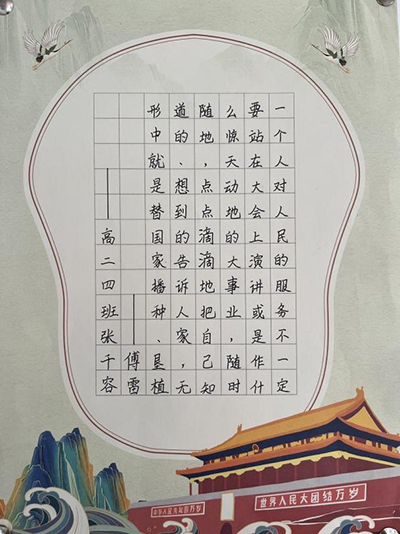 一个人对人民的服务不一定
要站在大会上演讲或是作什
么惊天动地的大事业，随时
随地，点点滴滴地把自己知
道的、想到的告诉人家，无
形中就是替国家播种、垦植
——傅雷
——高二四班张千容
中华人民共和国万岁
世界人民大团结万岁